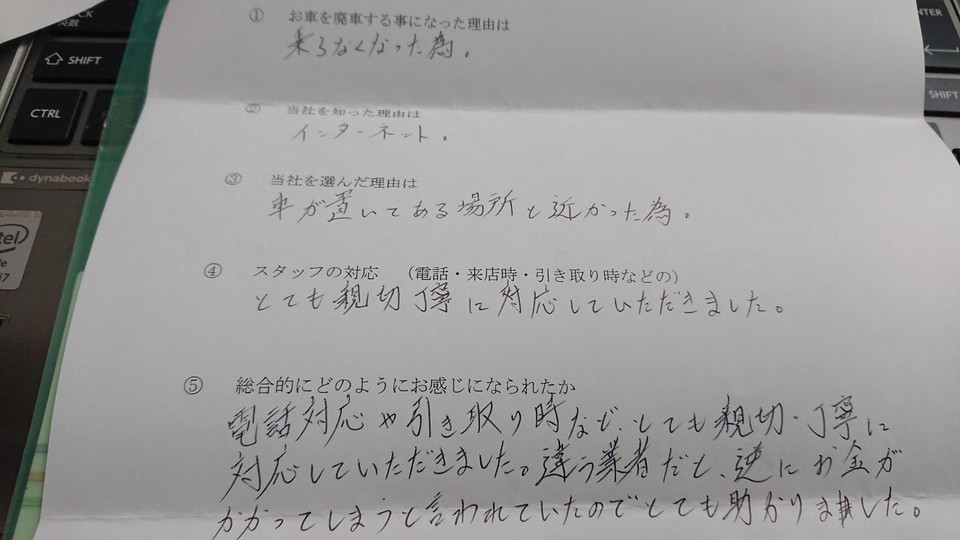 ① お車を廃車する事になった理由は
乗らなくなった為。
② 当社を知った理由は
インターネット。
③ 当社を選んだ理由は
車が置いてある場所と近かった為。
④ スタッフの対応 (電話・来店時・引き取り時などの)
とても親切丁寧に対応していただきました。
⑤ 総合的にどのようにお感じになられたか
電話対応や引き取り時など、とても親切・丁寧に
対応していただきました。違う業者だと、逆にお金が
かかってしまうと言われていたのでとても助かりました。
英数
SHIFT
CTRL
dynabook
i7
ENTER
SHIFT